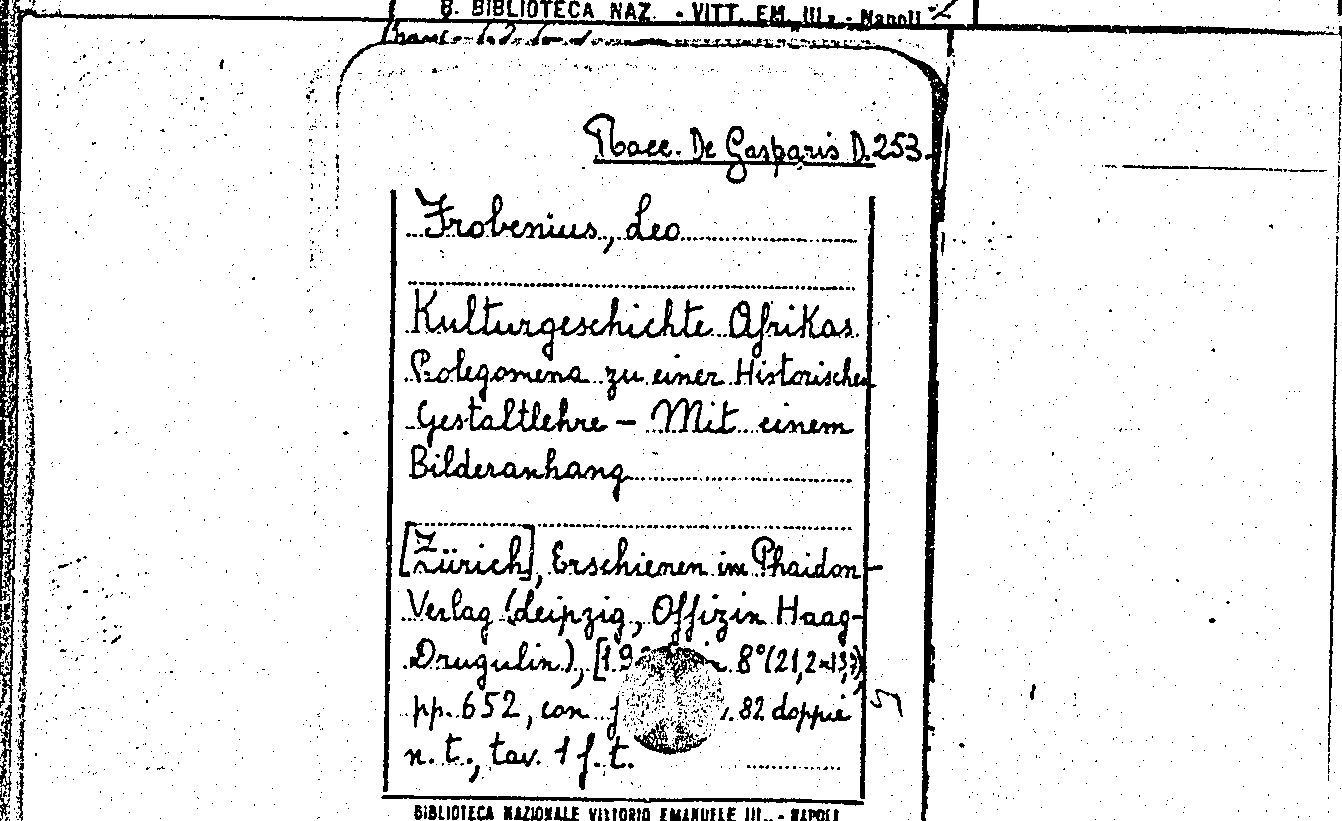 8. BIBLIOTECA NAZ. - VITT. EM. III. - Napoli
Racc. De Gasparis D. 253.
Frobenius, Leo
Kulturgeschichte Afrikas
Prolegomena zu einer Historischen
Gestaltlehre – Mit einem
Bilderanhang
[Zürich], Erschienen im Phaidon-
Verlag (Leipzig, Offizin Haag-
Drugulin), 8° (21,2×13,7)
pp. 652, con 82 doppie
n. t., tav. 1 f. t.
BIBLIOTECA NAZIONALE VITTORIO EMANUELE III. - NAPOLI